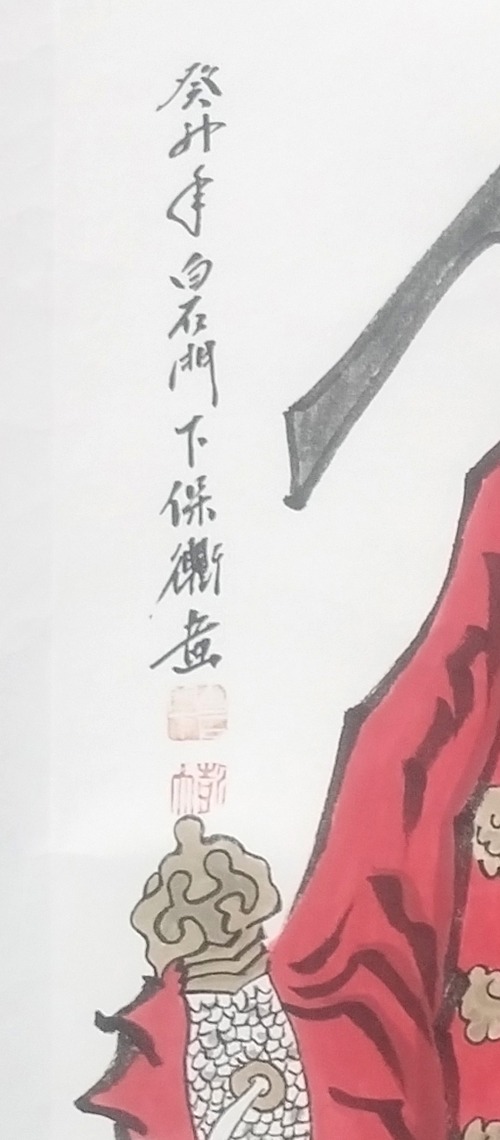 癸卯年白石門下保衡畫